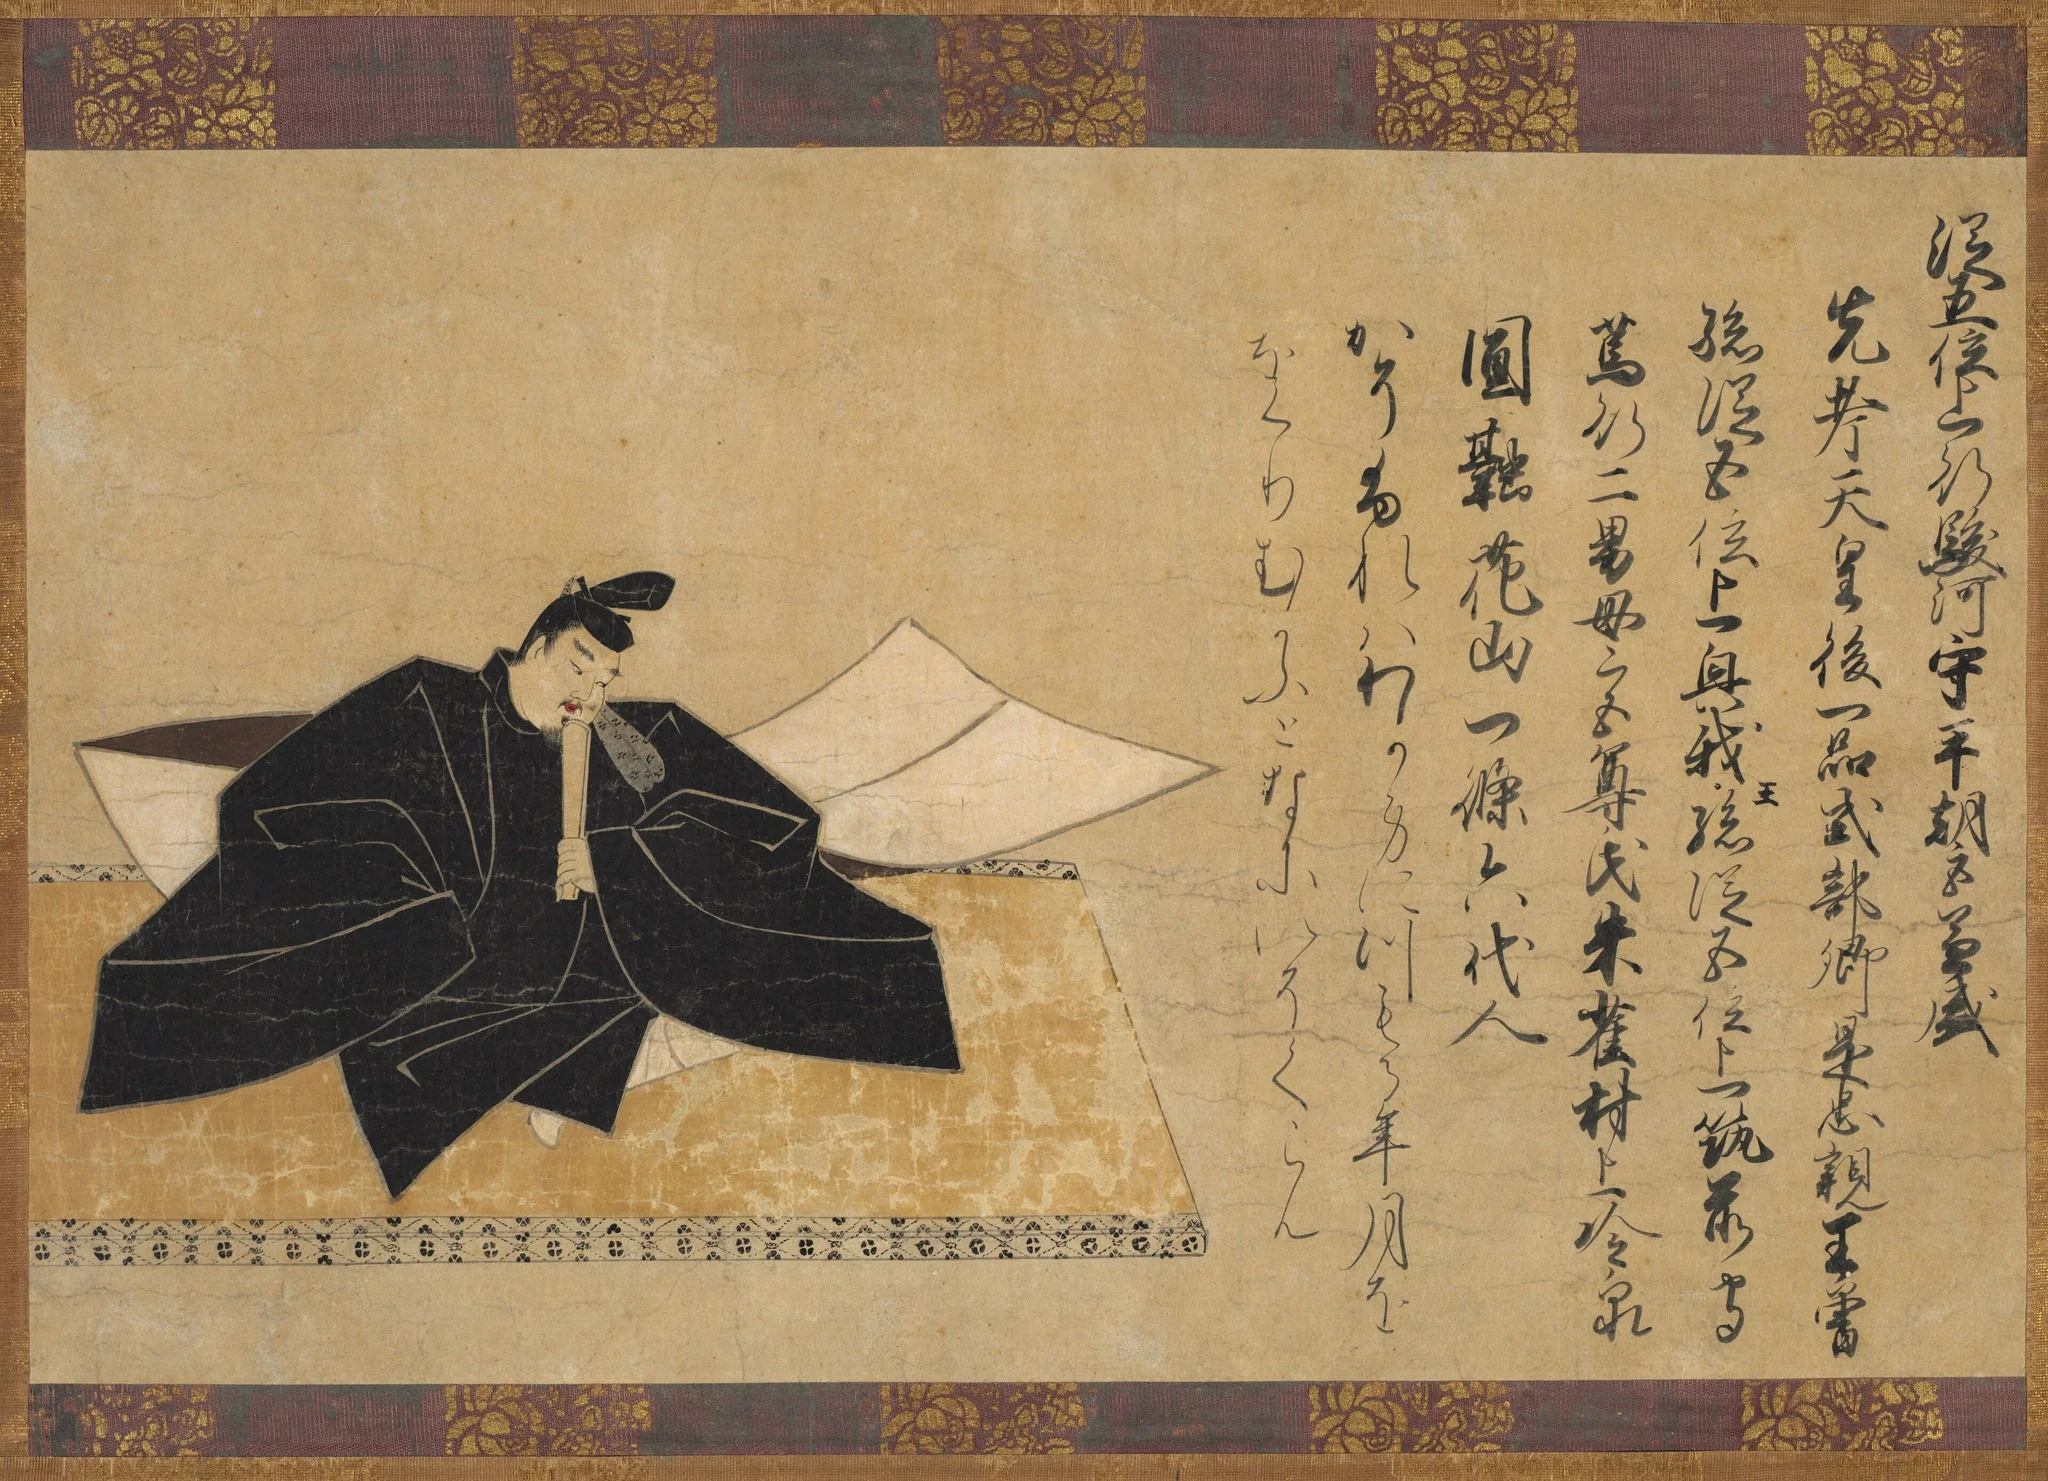 従五位上行駿河守平朝臣兼盛
光孝天皇後一品式部卿是忠親王曽
孫従五位上興我王孫従五位上筑前守
篤行二男母 朱雀村上冷泉
圓融花山一條六代人
かそふれハわか身につもる年月を
をくりむかふとなにいそくらん